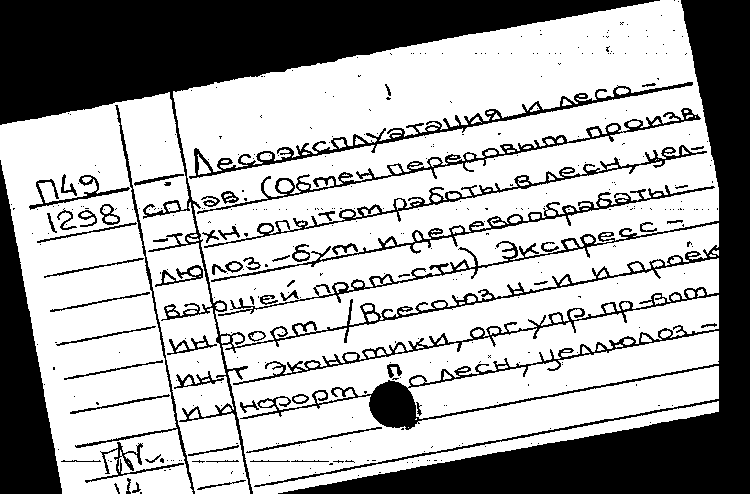 Лесоэксплуатация и лесо-
П49 сплав: (Обмен передовым произв.
1298 -техн. опытом работы в лесн., цел-
люлоз.-бум. и деревообрабаты-
вающей пром-сти) Экспресс-
информ. / Всесоюз. н.-и и проек
ин-т экономики, орг. упр. пр-вом
и информ. по лесн., целлюлоз.-
14